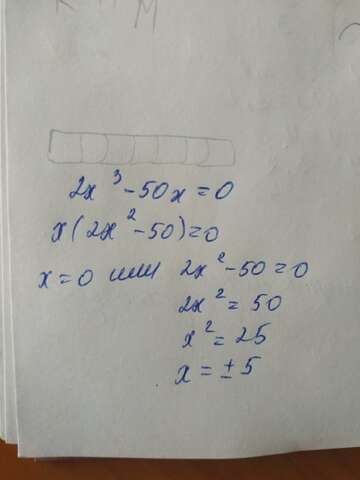 К И М
2x³ - 50x = 0
x(2x² - 50) = 0
x = 0 или 2x² - 50 = 0
2x² = 50
x² = 25
x = ± 5